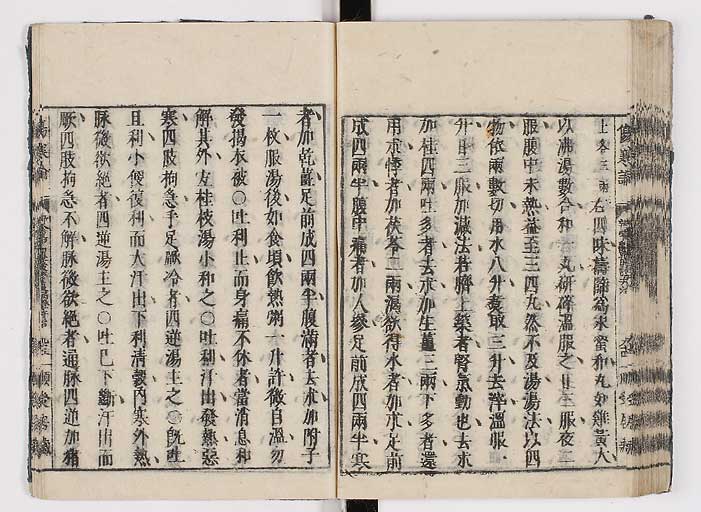 上各三兩右四味擣篩爲末蜜和丸如雞黃大
以沸湯數合和一丸硏碎溫服之日三服夜二
服腹中未熱益至三四丸然不及湯湯法以四
物依兩數切用水八升煑取三升去滓溫服一
升日三服加減法若臍上築者腎氣動也去朮
加桂四兩吐多者去朮加生薑三兩下多者還
用朮悸者加茯苓二兩渴欲得水者加朮足前
成四兩半腹中痛者加人參足前成四兩半寒
者加乾薑足前成四兩半腹滿者去朮加附子
一枚服湯後如食頃飮熱粥一升許微自溫勿
發揭衣被〇吐利止而身痛不休者當消息和
解其外宜桂枝湯小和之〇吐利汗出發熱惡
寒四肢拘急手足厥冷者四逆湯主之〇旣吐
且利小便復利而大汗出下利淸穀內寒外熱
脉微欲絶者四逆湯主之〇吐巳下斷汗出而
厥四肢拘急不解脉微欲絶者通脉四逆加猪
傷寒論
傷寒論